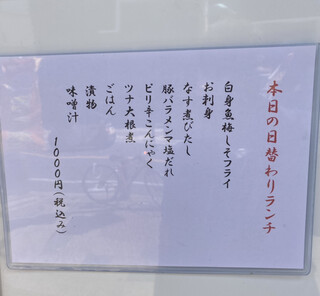 本日の日替わりランチ
白身魚梅しそフライ
お刺身
なす煮びたし
豚バラメンマ塩だれ
ピリ辛こんにゃく
ツナ大根煮
ごはん
漬物
味噌汁
1000円(税込み)